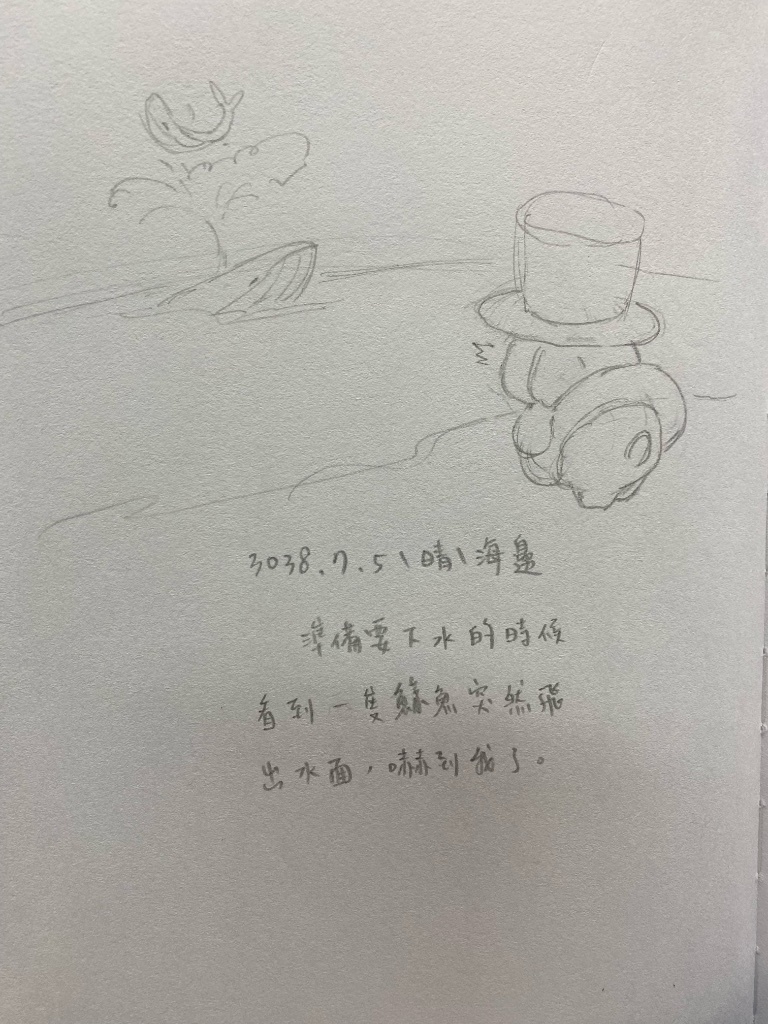 3038.7.5\晴\海邊
準備要下水的時候
看到一隻鯨魚突然飛
出水面,嚇到我了。